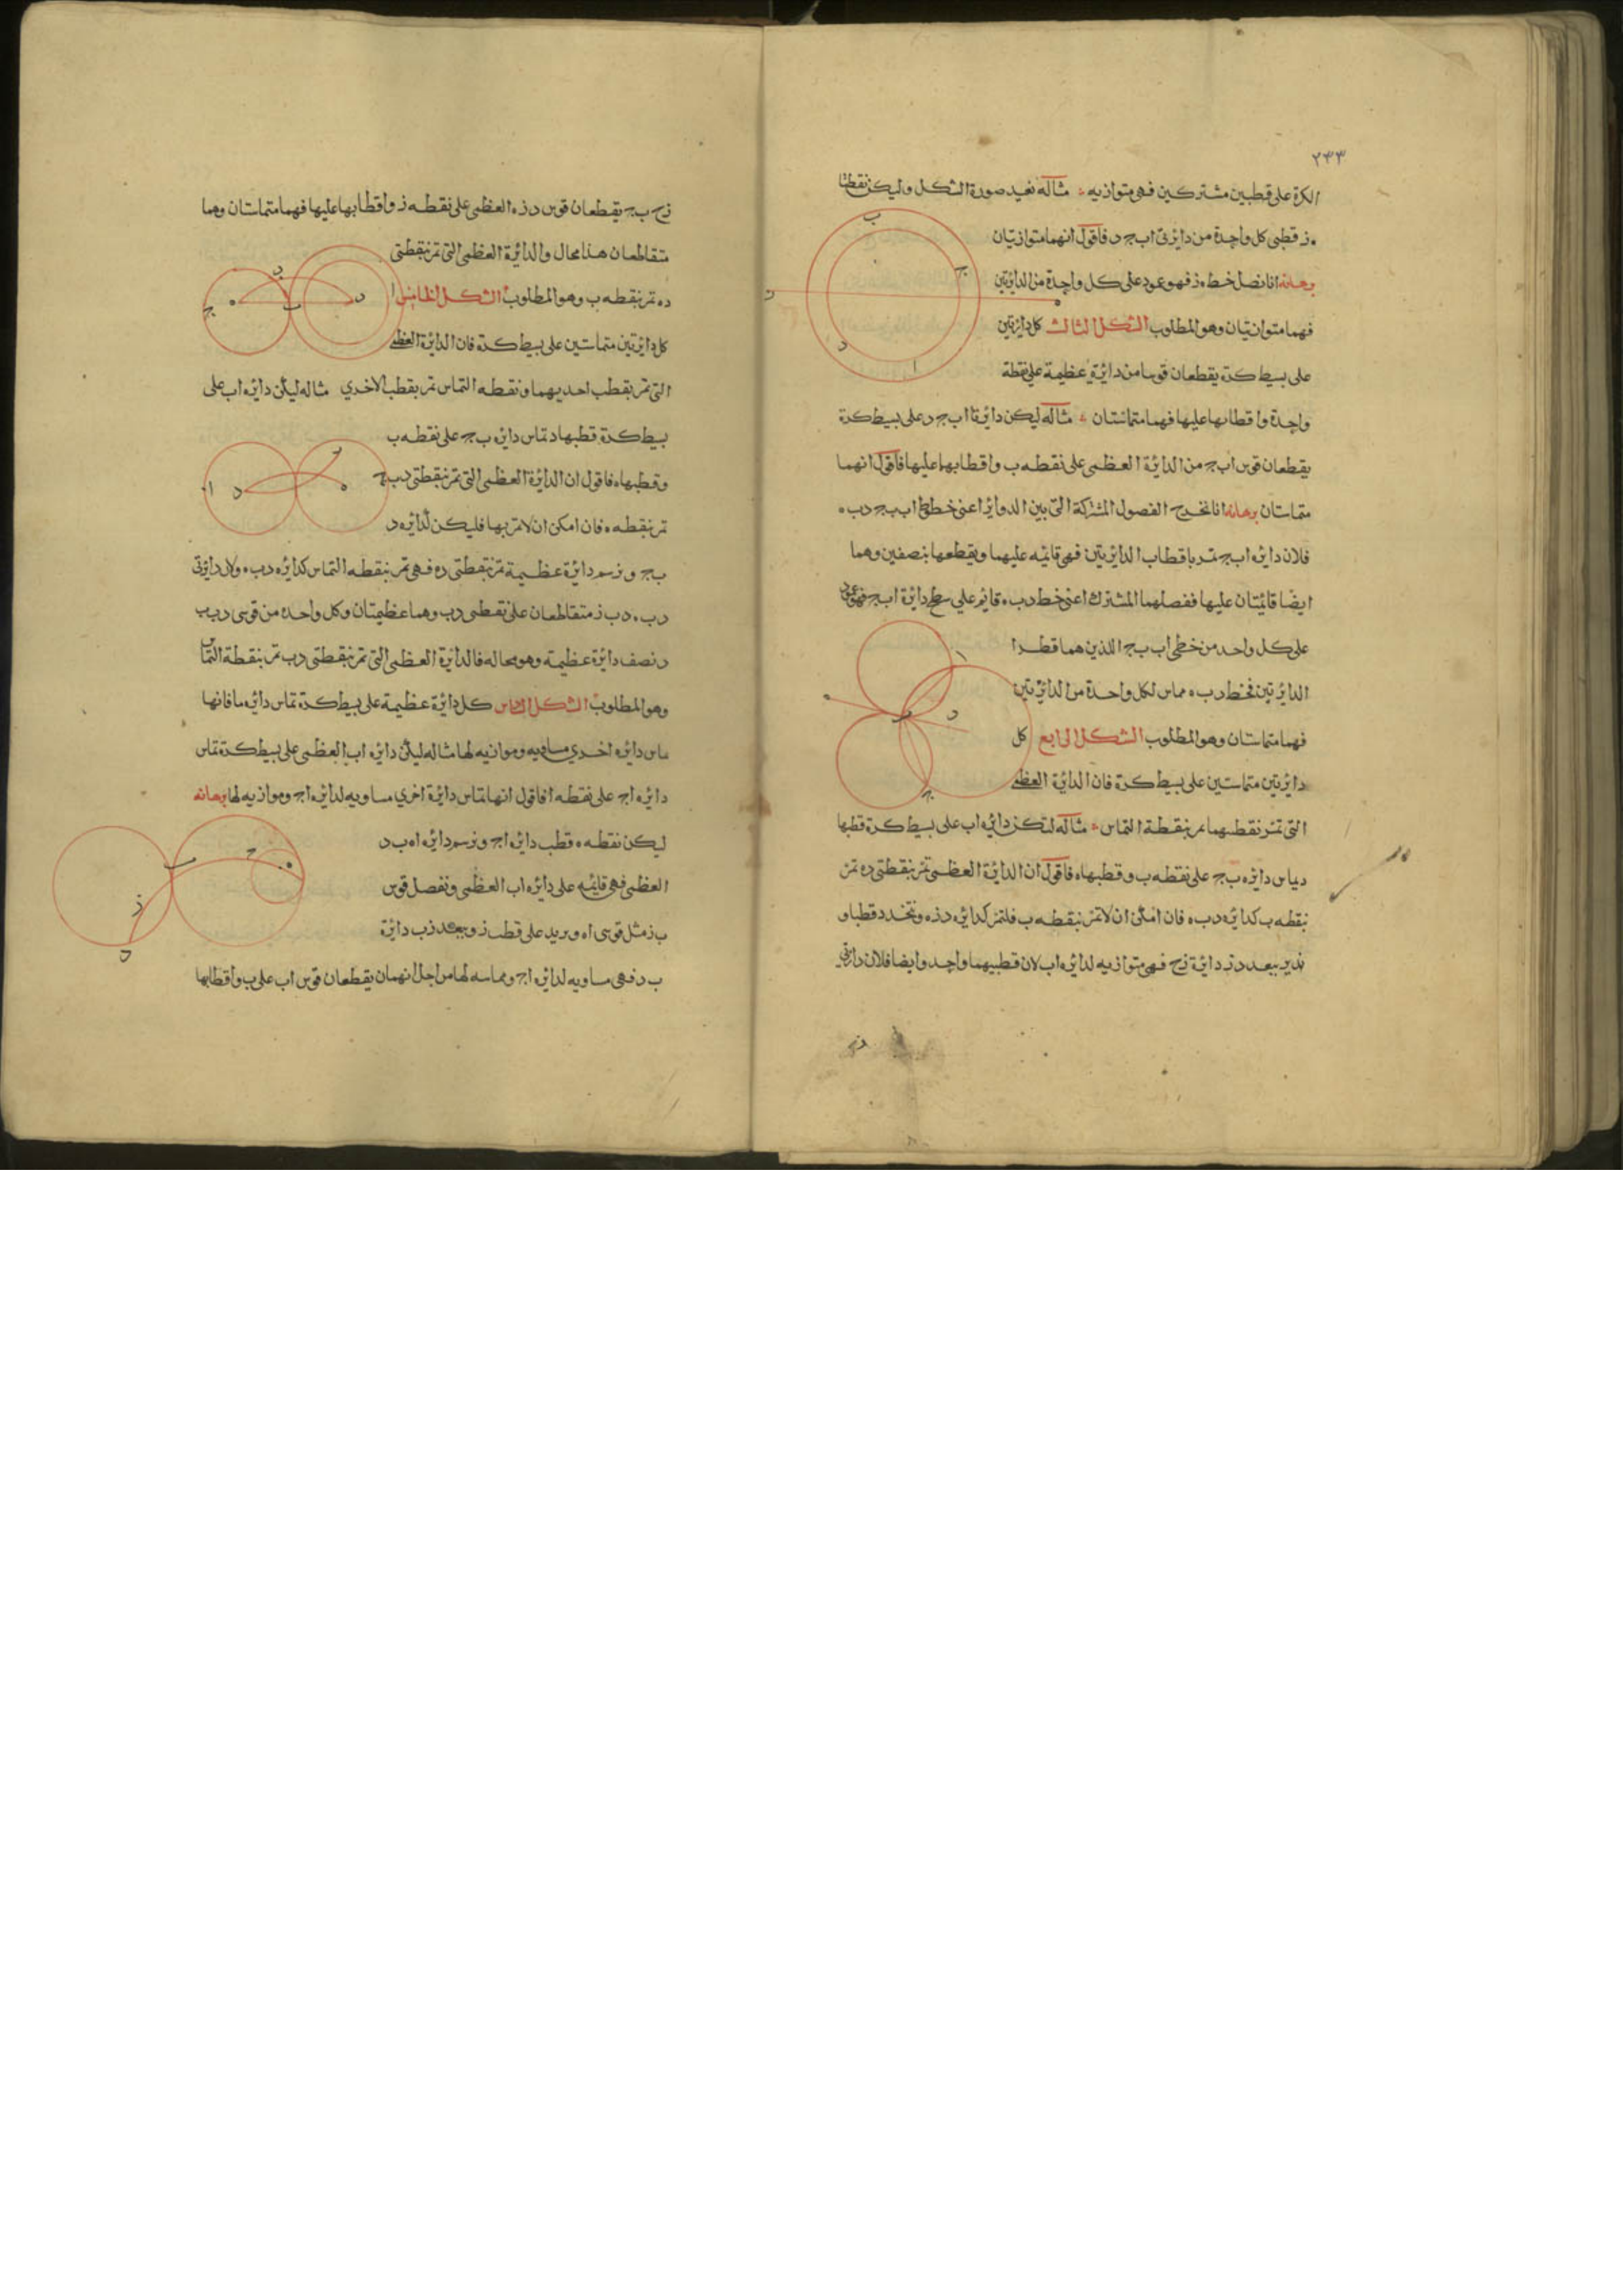 ٢٣٣
الكرة على قطبين مشتركين فهى متوازيه مثاله نعيد صورة الشكل وليكن نقطتا
ه ز قطبى كل واحدة من دايرتى اب ج د فاقول انهما متوازيتان
برهانه انا نصل خط ه ز فهو عمود على كل واحدة من الدايرتين
فهما متوازيتان وهو المطلوب الشكل الثالث كل دايرتين
على بسيط كرة يقطعان قوسا من دايرة عظيمة على نقطة
واحدة واقطابهما عليها فهما متماستان مثاله ليكن دايرتا اب ج د على بسيط كرة
يقطعان قوس اب ج من الدايرة العظمى على نقطه ب واقطابهما عليها فاقول انهما
متماستان برهانه انا نخرج الفصول المشتركة التى بين الدواير اعنى خطوط اب ب ج د ب ه
فلان دايره اب ج تمر باقطاب الدايرتين فهى قايمه عليهما ويقطعها بنصفين وهما
ايضا قايمتان عليها ففصلهما المشترك اعنى خط د ب ه قايم على سطح دايرة اب ج فهو عمود
على كل واحد من خطى اب ب ج اللذين هما قطرا
الدايرتين فخط د ب ه مماس لكل واحدة من الدايرتين
فهما متماستان وهو المطلوب الشكل الرابع كل
دايرتين متماستين على بسيط كرة فان الدايرة العظمى
التى تمر بقطبهما تمر بنقطة التماس مثاله لتكن دايره اب على بسيط كرة قطبها
د يماس دايره ب ج على نقطه ب وقطبها ه فاقول ان الدايرة العظمى تمر بنقطتى د ه تمر
نقطه ب كدايره د ب ه فان امكن ان لا تمر بنقطه ب فلتمر كدايره د ز ه ونتخذ د قطبا و
ندير ببعد د ز دايرة زح فهى متوازيه لدايره اب لان قطبيهما واحد وايضا فلان دايرتى
زح
زح ب ج يقطعان قوس د ز ه العظمى على نقطه ز واقطابها عليها فهما متماستان وهما
متقاطعان هذا محال والدايرة العظمى التى تمر بنقطتى
د ه تمر بنقطه ب وهو المطلوب الشكل الخامس
كل دايرتين متماستين على بسيط كرة فان الدايرة العظمى
التى تمر بقطب احديهما ونقطه التماس تمر بقطب الاخرى مثاله ليكن دايره اب على
بسيط كرة قطبها د تماس دايره ب ج على نقطه ب
وقطبها ه فاقول ان الدايرة العظمى التى تمر بنقطتى د ب
تمر بنقطه ه فان امكن ان لا تمر بها فليكن كدايره د
ب ج ونرسم دايرة عظيمة تمر بنقطتى د ه فهى تمر بنقطه التماس كدايره د ب ه ولان دايرتى
د ب ه د ب ز متقاطعان على نقطتى د ب وهما عظيمتان وكل واحده من قوسى د ب ب
د نصف دايرة عظيمة وهو محال فالدايرة العظمى التى تمر بنقطتى د ب تمر بنقطة التماس
وهو المطلوب الشكل السادس كل دايرة عظيمة على بسيط كرة تماس دايره ما فانها
ماس دايره اخرى مساويه وموازيه لها مثاله ليكن دايره اب العظمى على بسيط كرة تماس
دايره اج على نقطه ا فاقول انها تماس دايرة اخرى مساويه لدايره اج وموازيه لها برهانه
ليكن نقطه ه قطب دايره اج ونرسم دايره اه ب د
العظمى فهى قايمه على دايره اب العظمى ونفصل قوس
ب ز مثل قوس اه ونريد على قطب ز وببعد ز ب دايرة
ب د فهى مساويه لدايره اج ومماسه لها من اجل انهما يقطعان قوس اب على ب واقطابها